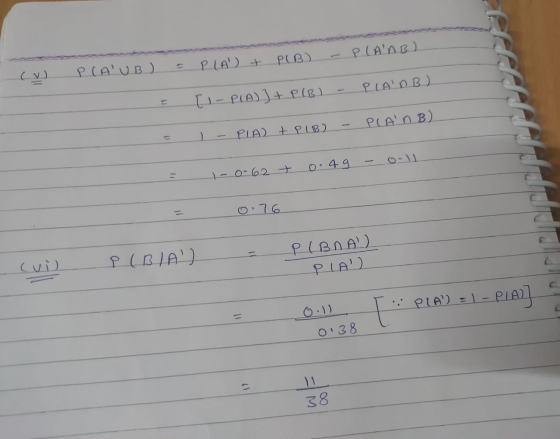 (v) P(A'∪B) = P(A') + P(B) - P(A'∩B)
= [1-P(A)] + P(B) - P(A'∩B)
= 1 - P(A) + P(B) - P(A'∩B)
= 1-0.62 + 0.49 - 0.11
= 0.76
(vi) P(B/A') = P(B∩A') / P(A')
= 0.11 / 0.38 [∵ P(A') = 1 - P(A)]
= 11 / 38